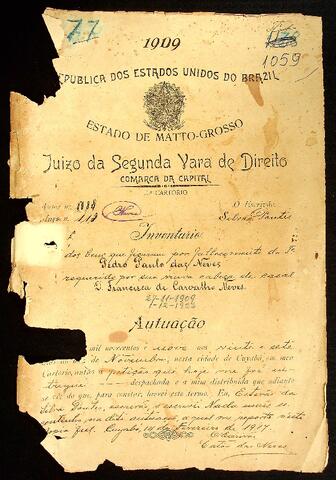 77
1909
1059
REPUBLICA DOS ESTADOS UNIDOS DO BRAZIL
ESTADO DE MATTO-GROSSO
Juizo da Segunda Vara de Direito
COMARCA DA CAPITAL
CARTORIO
O Escrivão
Inventario
dos bens que ficaram por fallecimento de
Pedro Paulo das Neves
requerido por sua viuva cabeça de casal
D. Francisca de Carvalho Neves.
27-11-1909
Autuação
mil novecentos e nove aos vinte e sete
de Novembro, nesta cidade de Cuyabá, em meu
Cartorio, autuo a petição que hoje me foi en-
tregue despachada e a mim distribuida que adiante
se vê do que, para constar, lavrei este termo. Eu,
Silva Pontes, escrivão, o escrevi. Nada mais
Cuyabá, 14 de Fevereiro de 1917.
O Escrivão
das Neves.